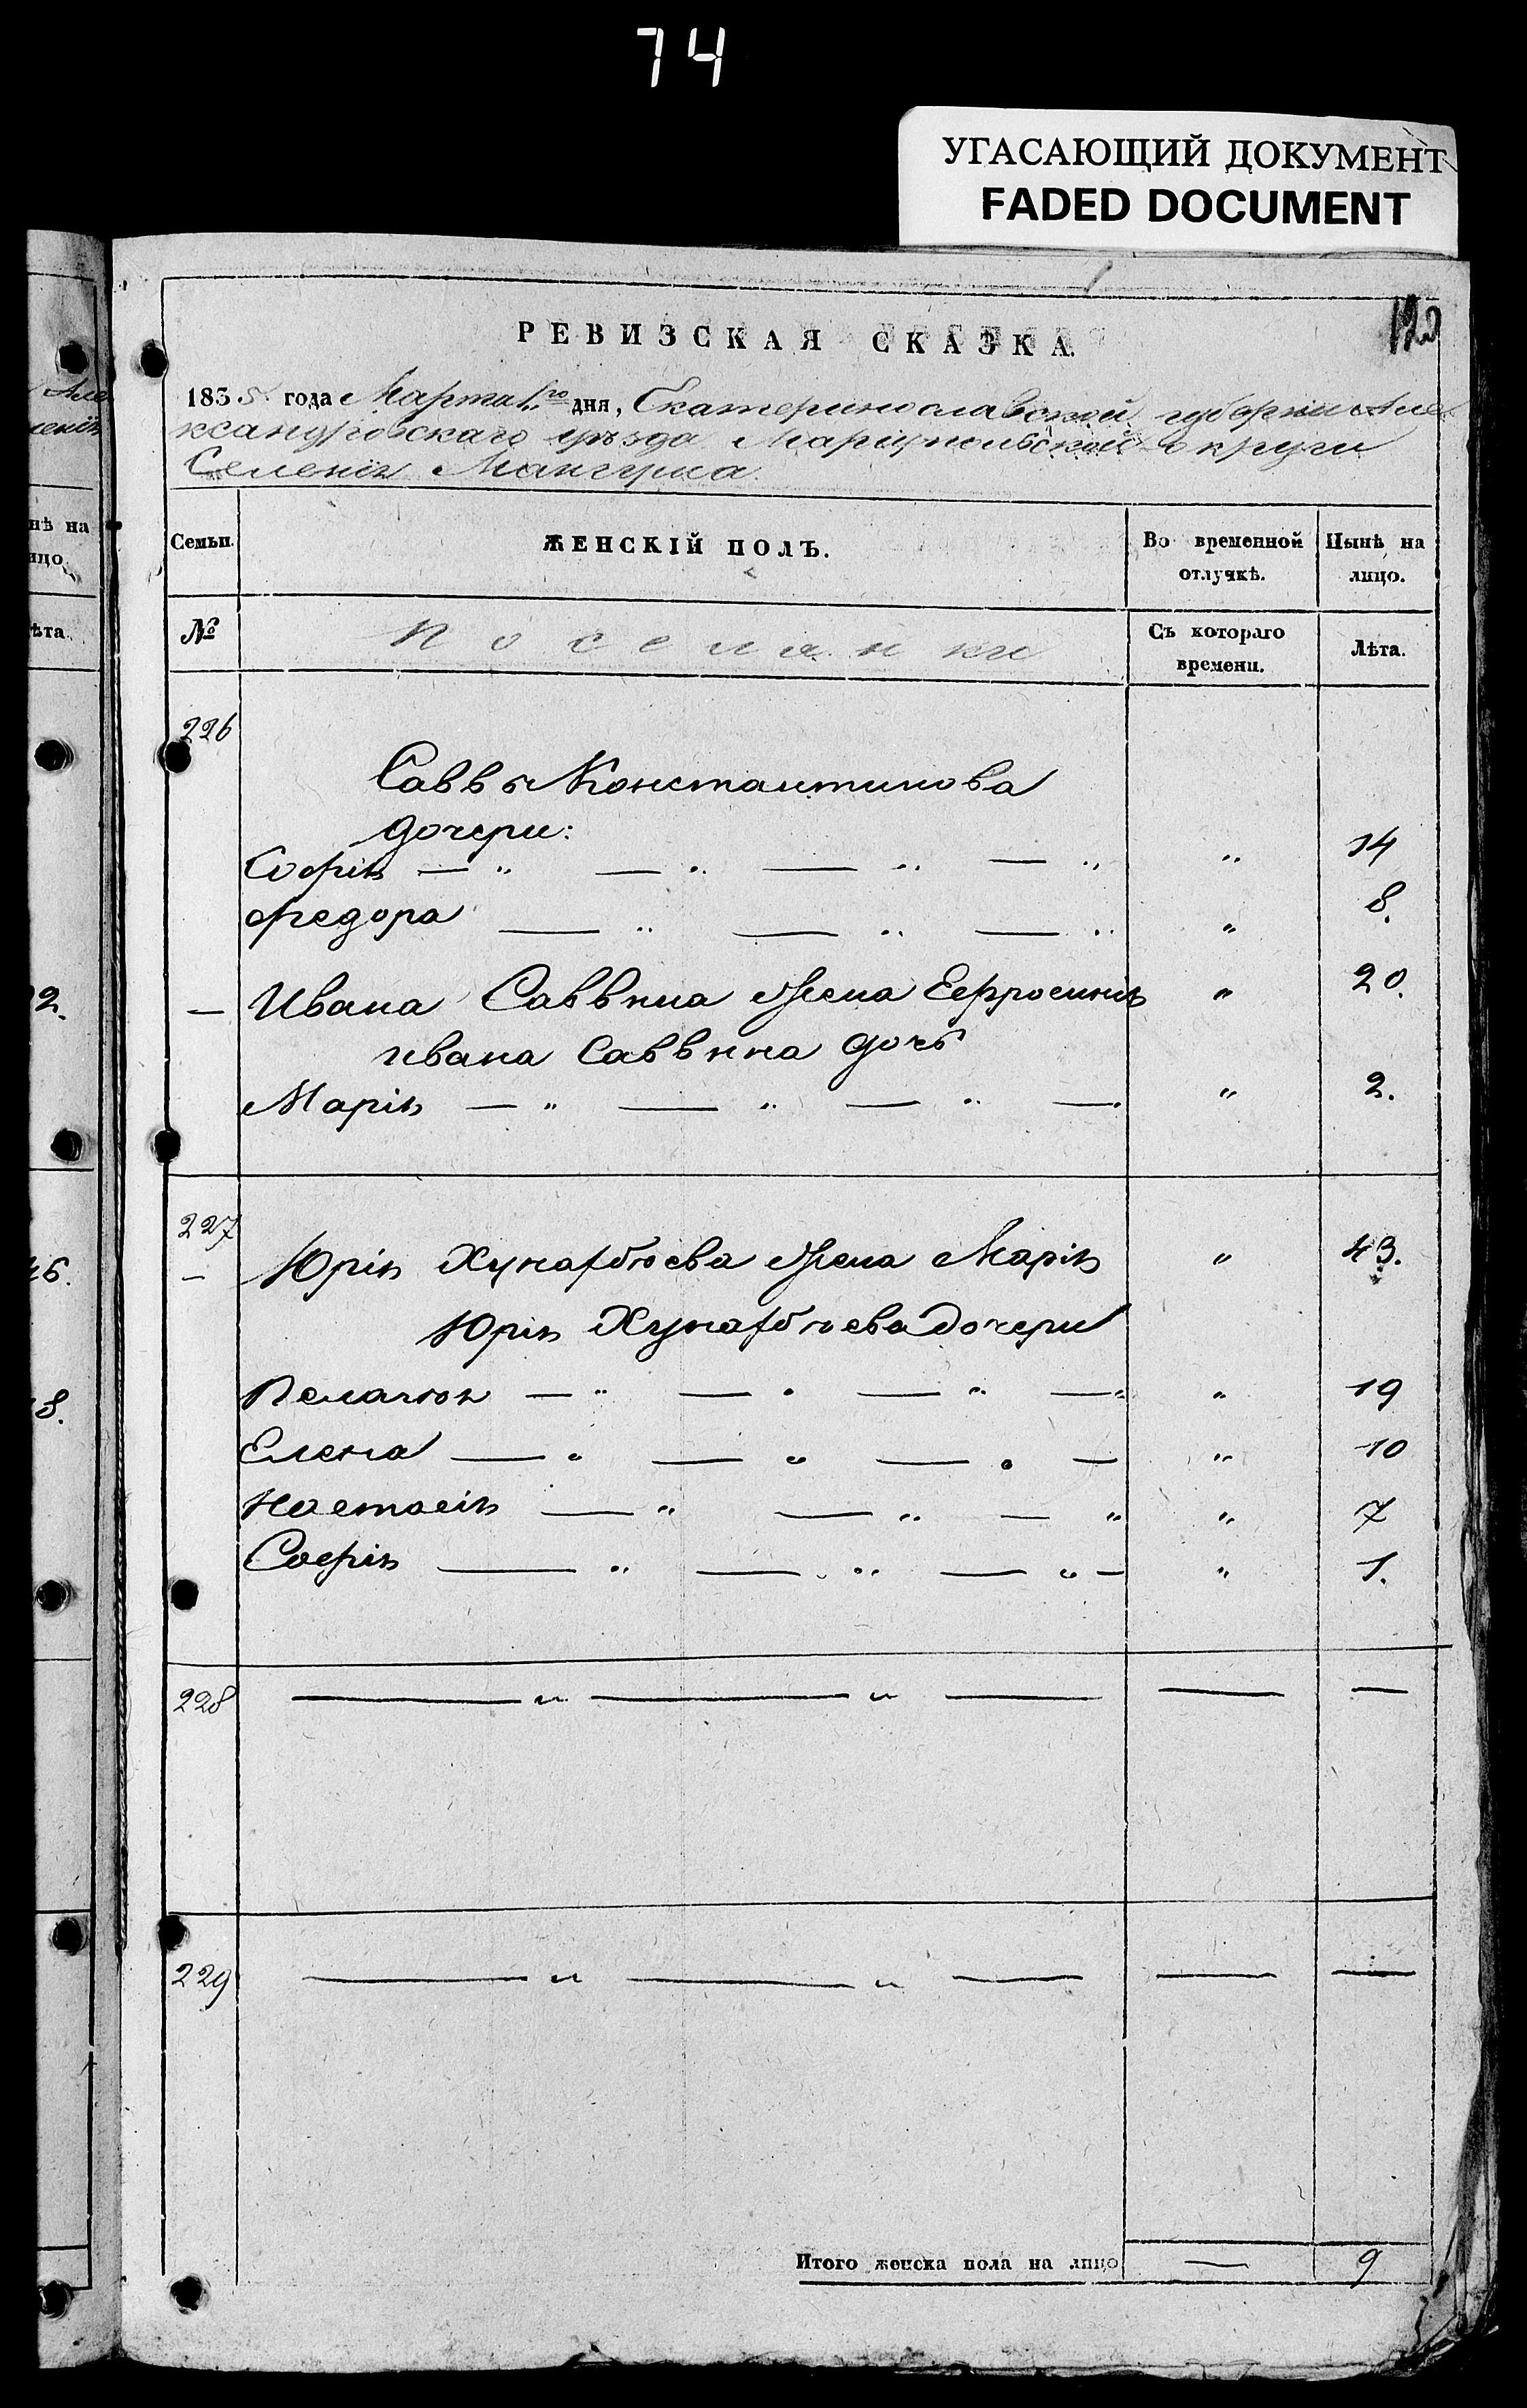 74
УГАСАЮЩИЙ ДОКУМЕНТ
FADED DOCUMENT
120
РЕВИЗСКАЯ СКАЗКА.
1835. года Марта 1го дня, Екатеринославской губернии Але
ксандровскаго уѣзда Мариупольской округи
Селенія Мангуша.
Семьи.
ЖЕНСКІЙ ПОЛЪ.
Во временной отлучкѣ.
Нынѣ на лицо.
№
Поселянки
Съ котораго времени.
Лѣта.
226
Саввы Константинова
дочери:
Софія — „ — „ — „ — „ „ 14
Федора — „ — „ — „ „ 8.
— Ивана Саввина жена Ефросинія „ 20.
Ивана Саввина дочь
Марія — „ — „ — „ — „ 2.
227
— Юрія Хунатбюева жена Марія „ 43.
Юрія Хунатбюева дочери
Пелагія — „ — „ — „ — „ „ 19
Елена — „ — „ — „ — „ 10
Настасія — „ — „ — „ „ 7
Софія — „ — „ — „ — „ 1.
228 — „ — „ — — —
229 — „ — „ — — —
Итого женска пола на лицо — 9
Але
сенія
нѣ на
ицо.
ѣта.
2.
46.
8.